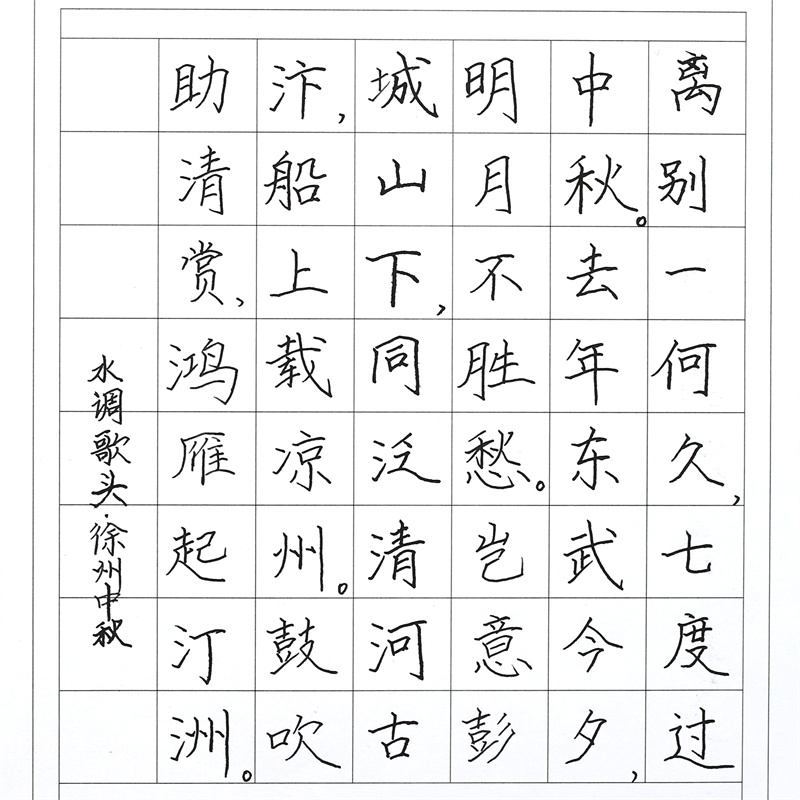 离别一何久，七度过
中秋。去年东武今夕，
明月不胜愁。岂意彭
城山下，同泛清河古
汴，船上载凉州。鼓吹
助清赏，鸿雁起汀洲。
水调歌头·徐州中秋